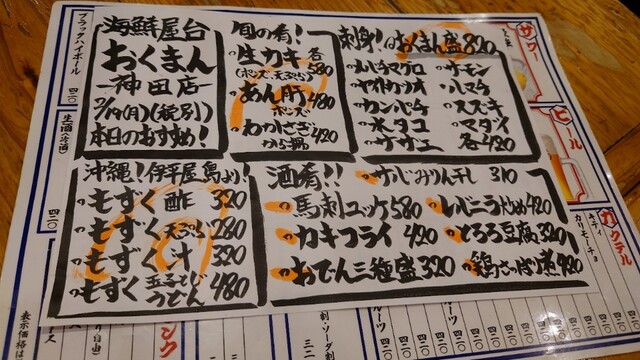 海鮮屋台
おくまん
神田店
2/19(月)(税別)
本日のおすすめ!
旬の肴!
・生カキ 各580
(ポン酢、天ぷら)
・あん肝 480
ポン酢
・わかさぎ
から揚 420
刺身! おくまん盛 820
・メバチマグロ
・ヤイカソーメン
・カンパチ
・水タコ
・サザエ
・サーモン
・ハマチ
・スズキ
・マダイ
各420
沖縄!伊平屋島より!
・もずく酢 320
・もずく天ぷら 280
・もずく汁 320
・もずく玉子とじうどん 480
酒肴!!
・サバみりん干し 310
・馬刺ユッケ 580
・レバニラ炒め 420
・カキフライ 420
・とろろ豆腐 320
・おでん三種盛 320
・鶏さっぱり煮 420
ブラックハイボール 四二〇
生酒(冷酒)
四二〇
サワー
ビール
カクテル
カリモーチョ
表示価格は